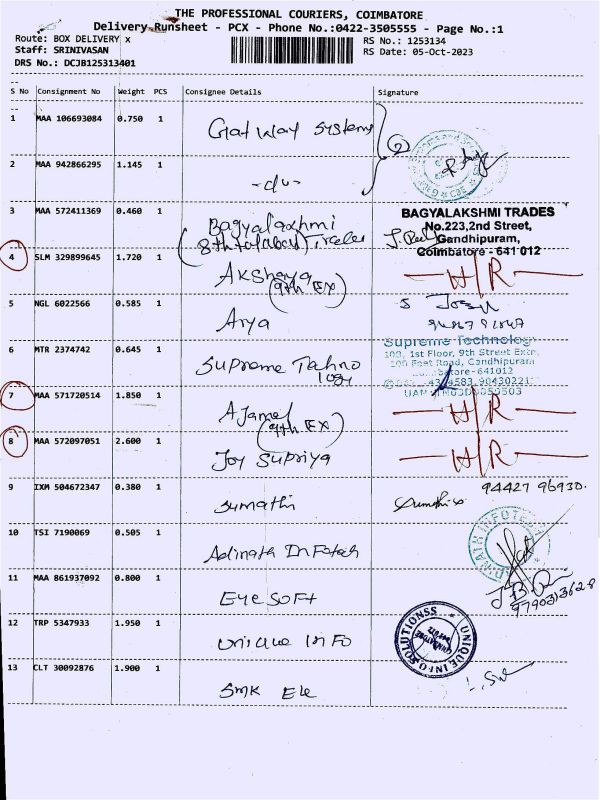 THE PROFESSIONAL COURIERS, COIMBATORE
Delivery Runsheet - PCX - Phone No.:0422-3505555 - Page No.:1
Route: BOX DELIVERY x
RS No.: 1253134
Staff: SRINIVASAN
RS Date: 05-Oct-2023
DRS No.: DCJB125313401
S No Consignment No Weight PCS Consignee Details Signature
1 MAA 106693084 0.750 1 Gat way Systems
2 MAA 942866295 1.145 1 -do-
3 MAA 572411369 0.460 1 Bagyalaxmi
BAGYALAKSHMI TRADES
No.223,2nd Street,
Gandhipuram,
Coimbatore - 641 012
4 SLM 329899645 1.720 1 Akshaya H/R
(9th EX)
5 NGL 6022566 0.585 1 Arya
6 MTR 2374742 0.645 1 Supreme Tehno
logy
Supreme Technology
100, 1st Floor, 9th Street Extn,
100 Feet Road, Gandhipuram
7 MAA 571720514 1.850 1 Ajamel H/R
(9th EX)
8 MAA 572097051 2.600 1 Joy Supriya H/R
9 IXM 504672347 0.380 1 Sumathi Sumathi
94427 96930
10 TSI 7190069 0.505 1 Adinath Infotech
11 MAA 861937092 0.800 1 Eye soft
9790313628
12 TRP 5347933 1.950 1 unique info
UNIQUE INFO SOLUTIONSS
13 CLT 30092876 1.900 1 SMK Ele